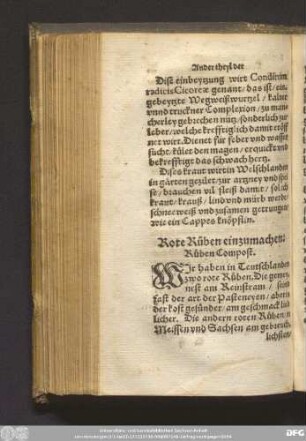 Ander theyl der
Dise einbeytzung wirt Conditum
radicis Cicoreæ genant/ das ist/ ein-
gebeyzte Wegweißwurtzel/ kalter
vnnd truckner Complexion/ zu man-
cherley gebrechen nütz/ sonderlich zur
leber/ welche krefftiglich damit eröff
net wirt. Dienet für feber vnd wasser
sucht/ kület den magen/ erquickt vnd
bekrefftigt das schwach hertz.
Dises kraut wirt in Welschlanden
in gärten gezilet/ zur artzney vnd spei
se/ brauchen vil fleiß damit/ solch
kraut/ krauß/ lind vnd mürb
schneeweiß vnd zusamen getrungen
wie ein Cappes knöpflin.
Rote Rüben einzumachen/
Rüben Compost.
WIr haben in Teutschlanden
zwo rote Rüben. Die gemey-
nest am Reinstram/ seind
fast der art der Pasteneyen/ aber in
der kost gesünder/ am geschmack lieb
licher. Die andern roten Rüben in
Meissen vnd Sachsen am gebreuch-
lichsten/